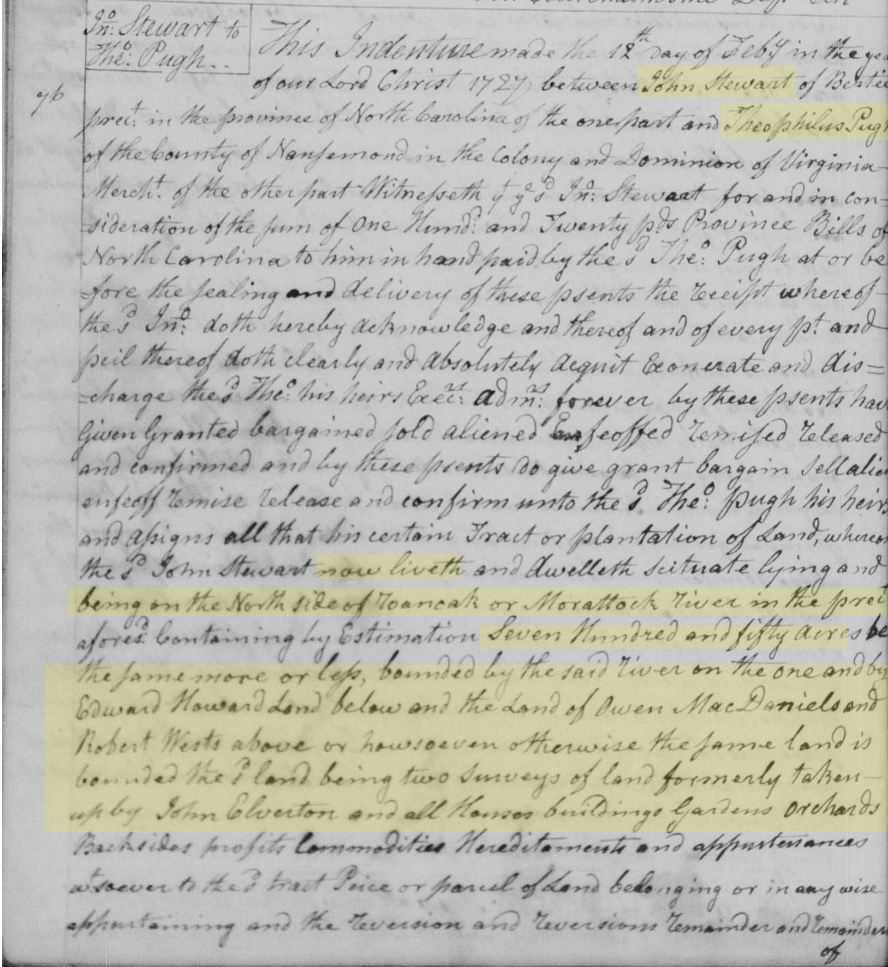 Jno: Stewart to
Theo: Pugh..
This Indenture made the 12th day of Feby in the yea
of our Lord Christ 1727 between John Stewart of Bertie
76
prect. in the province of North Carolina of the one part and Theophilus Pugh
of the County of Nansemond in the Colony and Dominion of Virginia
Mercht. of the other part Witnesseth yt ye sd Jno: Stewart for and in con-
-sideration of the sum of One Hundd. and Twenty pds Province Bills of
North Carolina to him in hand paid by the sd Theo: Pugh at or be
-fore the sealing and delivery of these psents the receipt whereof
the sd Jno: doth hereby acknowledge and thereof and of every pt. and
pcil thereof doth clearly and absolutely acquit Exonerate and dis=
-charge the sd Theo: his heirs Execrs: admrs: forever by these psents have
Given Granted bargained sold aliened Enfeoffed remised released
and confirmed and by these psents do give grant bargain sell alien
enfeoff remise release and confirm unto the sd Theo: pugh his heirs
and assigns all that his certain Tract or plantation of Land, whereon
the sd John Stewart now liveth and dwelleth scituate lying and
being on the North side of roanoak or Morattock river in the prect
aforesd. Containing by Estimation Seven Hundred and fifty acres be
the same more or less, bounded by the said river on the one and by
Edward Howard Land below and the Land of Owen MacDaniels and
Robert Wests above or howsoeven otherwise the same land is
bounded the sd land being two surveys of land formerly taken
up by John Elverton and all Houses buildings Gardens orchards
Backsides profits Commodities Hereditaments and appurtenances
wtsoever to the sd tract Peice or parcel of Land belonging or in any wise
appertaining and the reversion and reversions remainder and remainders
of